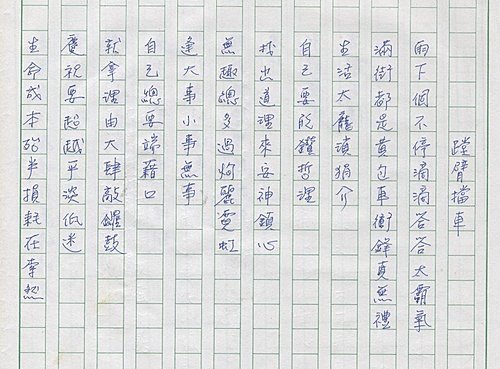 螳臂擋車
雨下個不停滴滴答答太霸氣
滿街都是黃包車衝鋒真無禮
生活太龐瑣狷介
自己要能鑽哲理
找出道理來安神鎮心
無趣總多過炯麗霓虹
逢大事小事無事
自己總要端藉口
就拿理由大肆敲鑼鼓
慶祝要超越平淡低迷
生命成本殆半損耗在